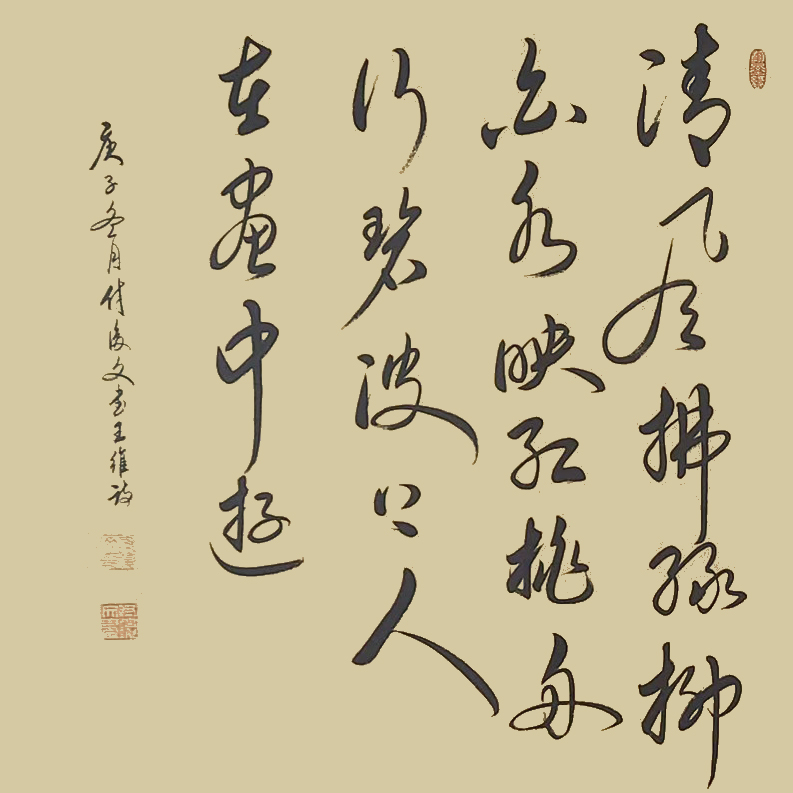 清风拂绿柳
白水映红桃舟
行碧波上人
在画中游
庚子冬月付俊文书王维诗